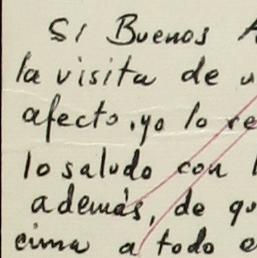 Si Buenos A
la visita de u
afecto, yo lo re
lo saludo con l
además, de qu
cima a todo e